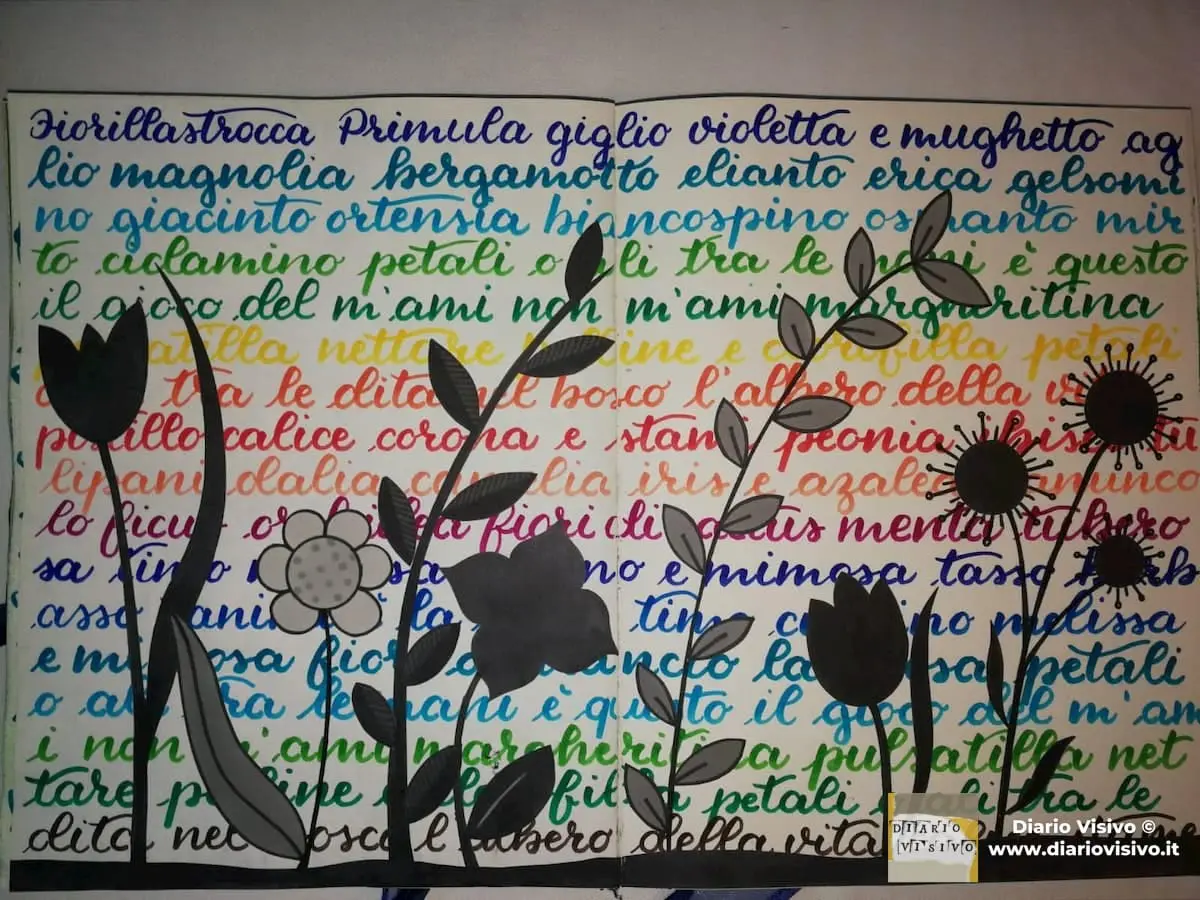 Fiorillastrocca Primula giglio violetta e mughetto ag
lio magnolia bergamotto elianto erica gelsomi
no giacinto ortensia biancospino osmanto mir
to ciclamino petali o ali tra le mani è questo
il gioco del m'ami non m'ami margheritina
pulsatilla nettare polline e clorofilla petali
tra le dita nel bosco l'albero della vita
pistillo calice corona e stami peonia ibisco tu
lipani dalia camelia iris e azalea ranunco
lo ficus orchidea fiori di cactus menta tubero
sa timo e mimosa tasso barb
asso la timo melissa
e mimosa fior la rosa petali
o ali tra le mani è questo il gioco del m'am
i non m'ami margheritina pulsatilla net
tare polline e clorofilla petali o ali tra le
dita nel bosco l'albero della vita
DIARIO
VISIVO
Diario Visivo ©
www.diariovisivo.it